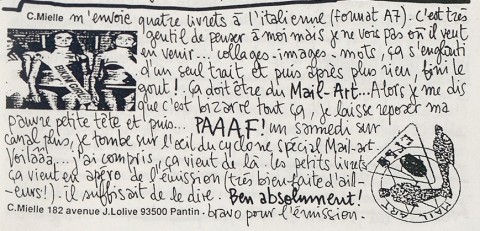 C.Mielle m'envoie quatre livrets à l'italienne (format A7). c'est très
gentil de penser à moi mais je ne vois pas on il veut
en venir... collages-images-mots, ça s'englouti
d'un seul trait et puis après plus rien, fini le
gout! Ça doit être du Mail-Art... Alors je me dis
que c'est bizarre tout ça, je laisse reposer ma
pauvre petite tête et puis... PAAAF! un samedi sur
canal plus, je tombe sur l'oeil du cyclone spécial Mail-art.
Voilààà... j'ai compris, ça vient de là. les petits livrets
ça vient en apéro de l'émission (très bien faite d'ail-
-eurs!). il suffisait de le dire. Ben absolument!
C.Mielle 182 avenue J.Lolive 93500 Pantin. bravo pour l'émission.
MAIL ART